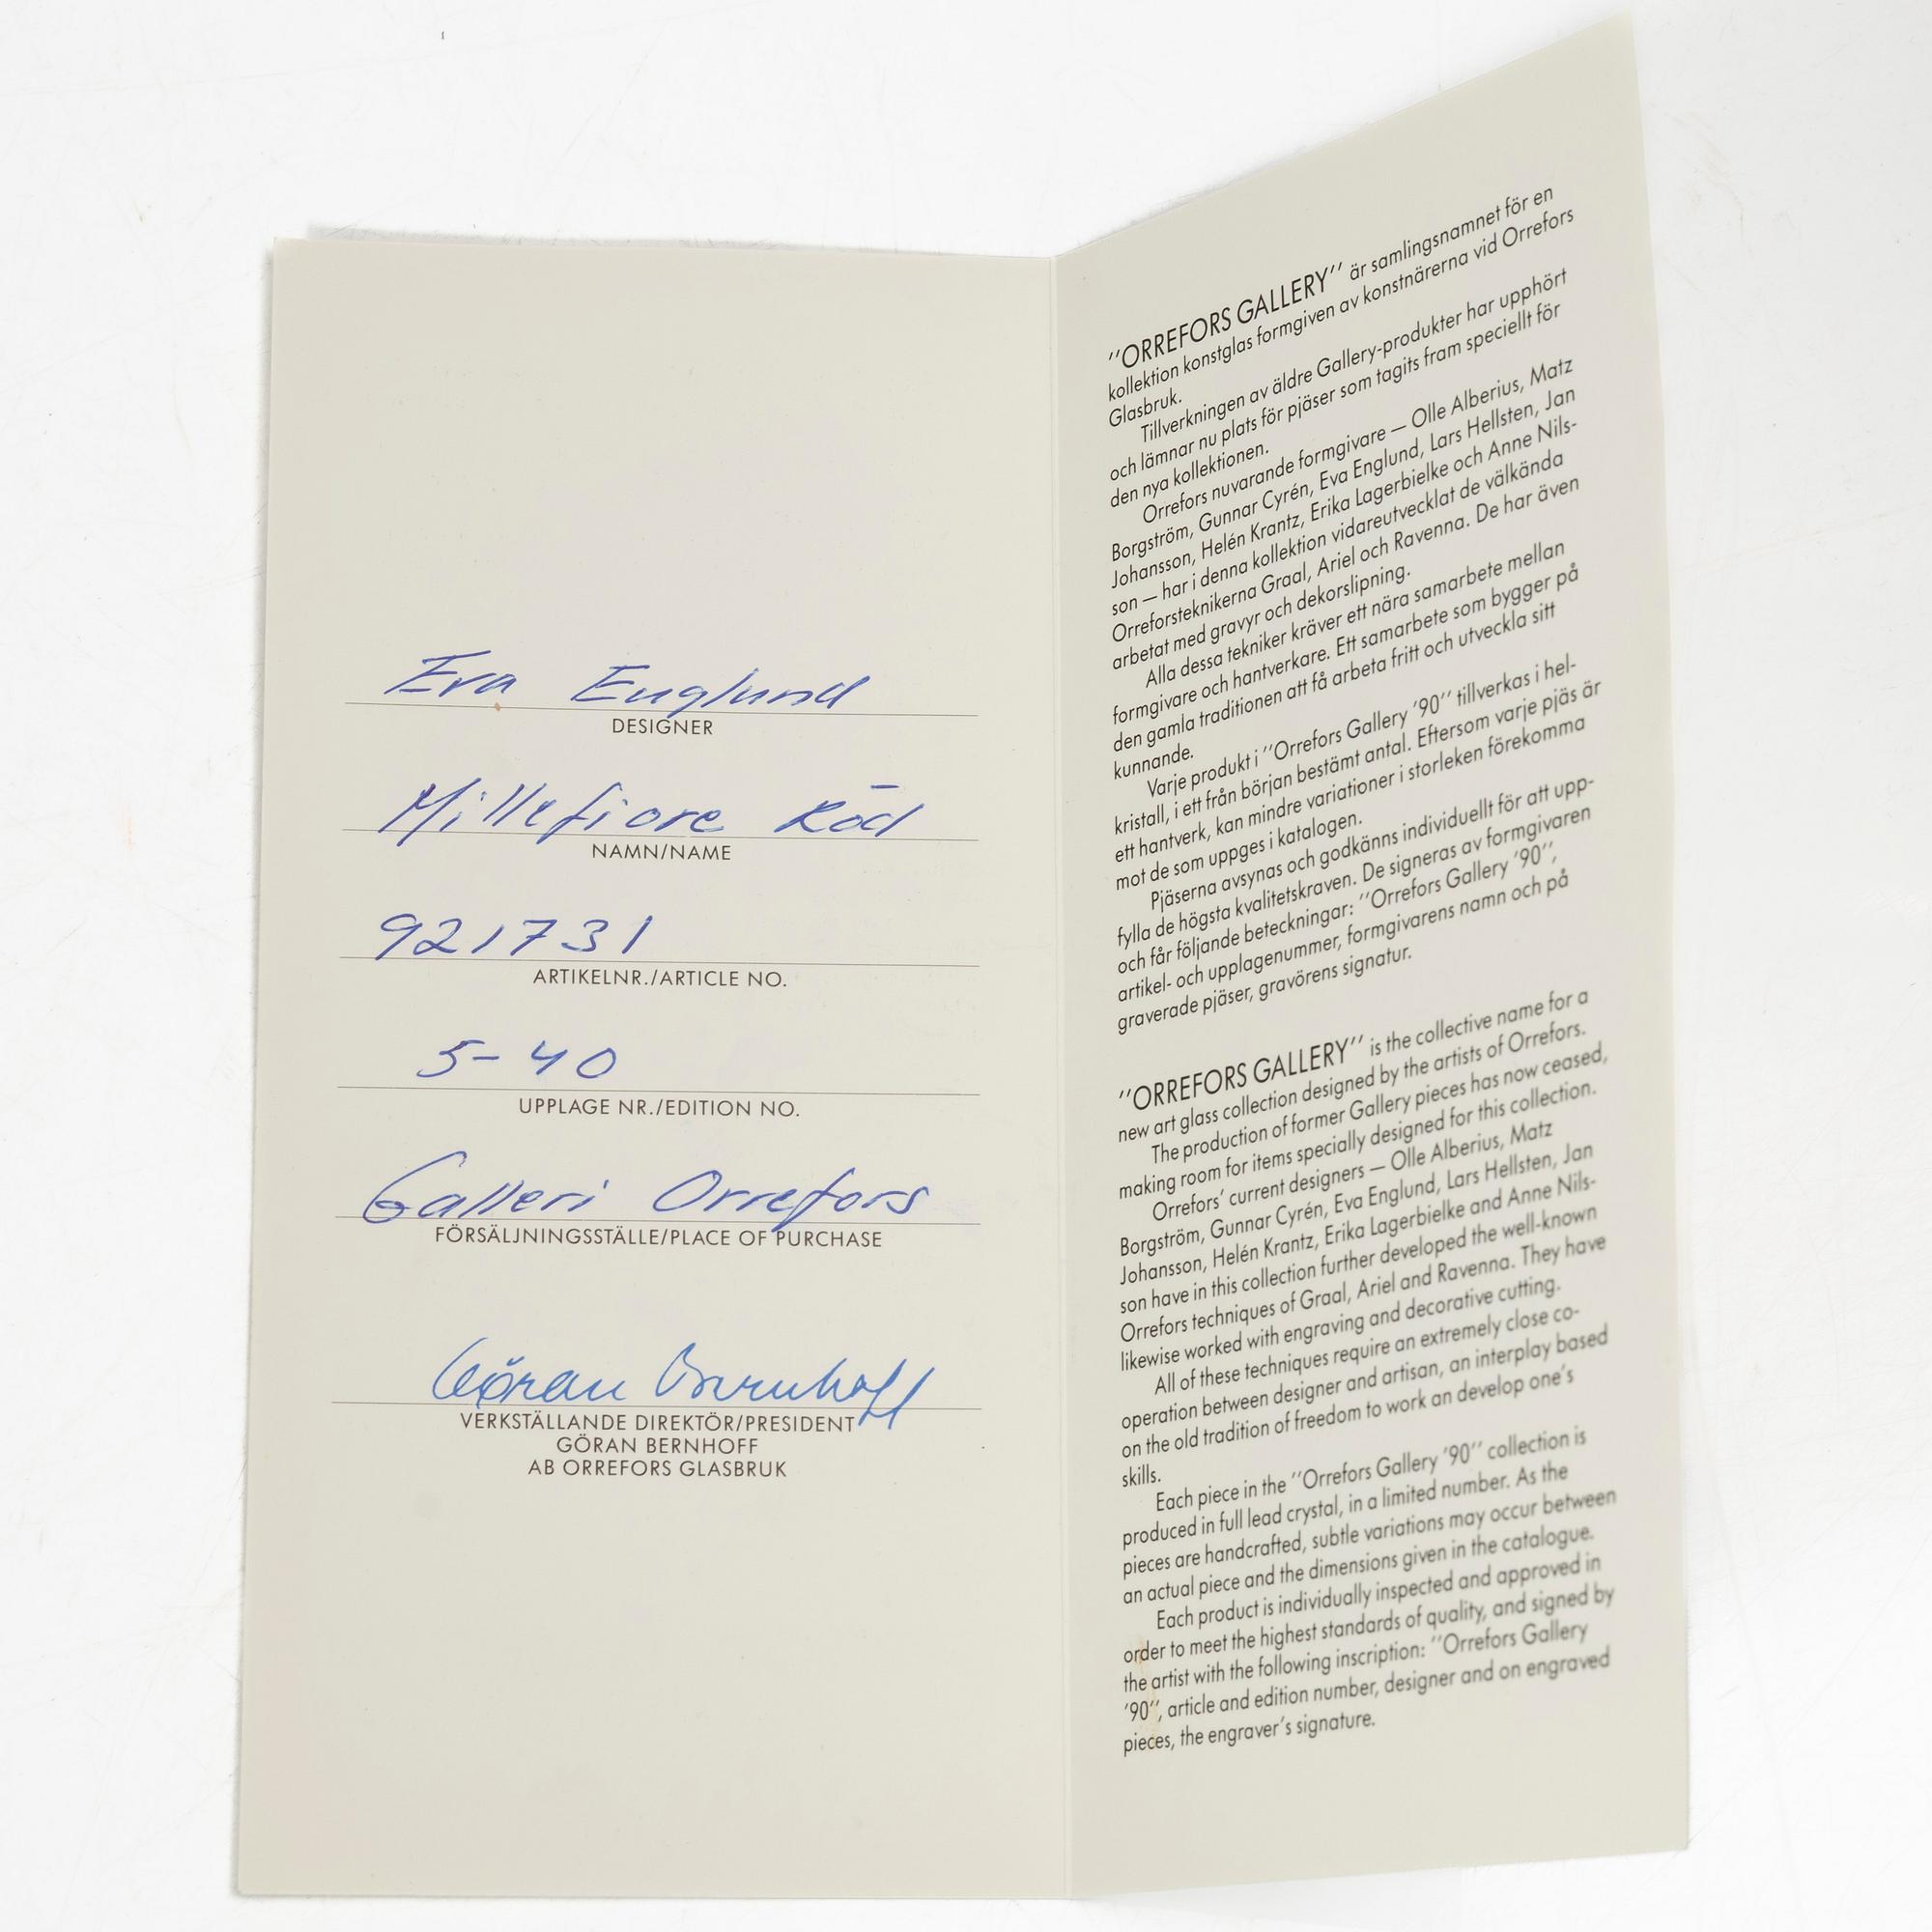 Eva Englund
DESIGNER
Millefiore Röd
NAMN/NAME
921731
ARTIKELNR./ARTICLE NO.
5-40
UPPLAGE NR./EDITION NO.
Galleri Orrefors
FÖRSÄLJNINGSSTÄLLE/PLACE OF PURCHASE
Göran Bernhoff
VERKSTÄLLANDE DIREKTÖR/PRESIDENT
GÖRAN BERNHOFF
AB ORREFORS GLASBRUK
''ORREFORS GALLERY'' är samlingsnamnet för en
kollektion konstglas formgiven av konstnärerna vid Orrefors
Glasbruk.
Tillverkningen av äldre Gallery-produkter har upphört
och lämnar nu plats för pjäser som tagits fram speciellt för
den nya kollektionen.
Orrefors nuvarande formgivare — Olle Alberius, Matz
Borgström, Gunnar Cyrén, Eva Englund, Lars Hellsten, Jan
Johansson, Helén Krantz, Erika Lagerbielke och Anne Nils-
son — har i denna kollektion vidareutvecklat de välkända
Orreforsteknikerna Graal, Ariel och Ravenna. De har även
arbetat med gravyr och dekorslipning.
Alla dessa tekniker kräver ett nära samarbete mellan
formgivare och hantverkare. Ett samarbete som bygger på
den gamla traditionen att få arbeta fritt och utveckla sitt
kunnande.
Varje produkt i ''Orrefors Gallery '90'' tillverkas i hel-
kristall, i ett från början bestämt antal. Eftersom varje pjäs är
ett hantverk, kan mindre variationer i storleken förekomma
mot de som uppges i katalogen.
Pjäserna avsynas och godkänns individuellt för att upp-
fylla de högsta kvalitetskraven. De signeras av formgivaren
och får följande beteckningar: ''Orrefors Gallery '90'',
artikel- och upplagenummer, formgivarens namn och på
graverade pjäser, gravörens signatur.
''ORREFORS GALLERY'' is the collective name for a
new art glass collection designed by the artists of Orrefors.
The production of former Gallery pieces has now ceased,
making room for items specially designed for this collection.
Orrefors' current designers — Olle Alberius, Matz
Borgström, Gunnar Cyrén, Eva Englund, Lars Hellsten, Jan
Johansson, Helén Krantz, Erika Lagerbielke and Anne Nils-
son have in this collection further developed the well-known
Orrefors techniques of Graal, Ariel and Ravenna. They have
likewise worked with engraving and decorative cutting.
All of these techniques require an extremely close co-
operation between designer and artisan, an interplay based
on the old tradition of freedom to work an develop one's
skills.
Each piece in the ''Orrefors Gallery '90'' collection is
produced in full lead crystal, in a limited number. As the
pieces are handcrafted, subtle variations may occur between
an actual piece and the dimensions given in the catalogue.
Each product is individually inspected and approved in
order to meet the highest standards of quality, and signed by
the artist with the following inscription: ''Orrefors Gallery
'90'', article and edition number, designer and on engraved
pieces, the engraver's signature.